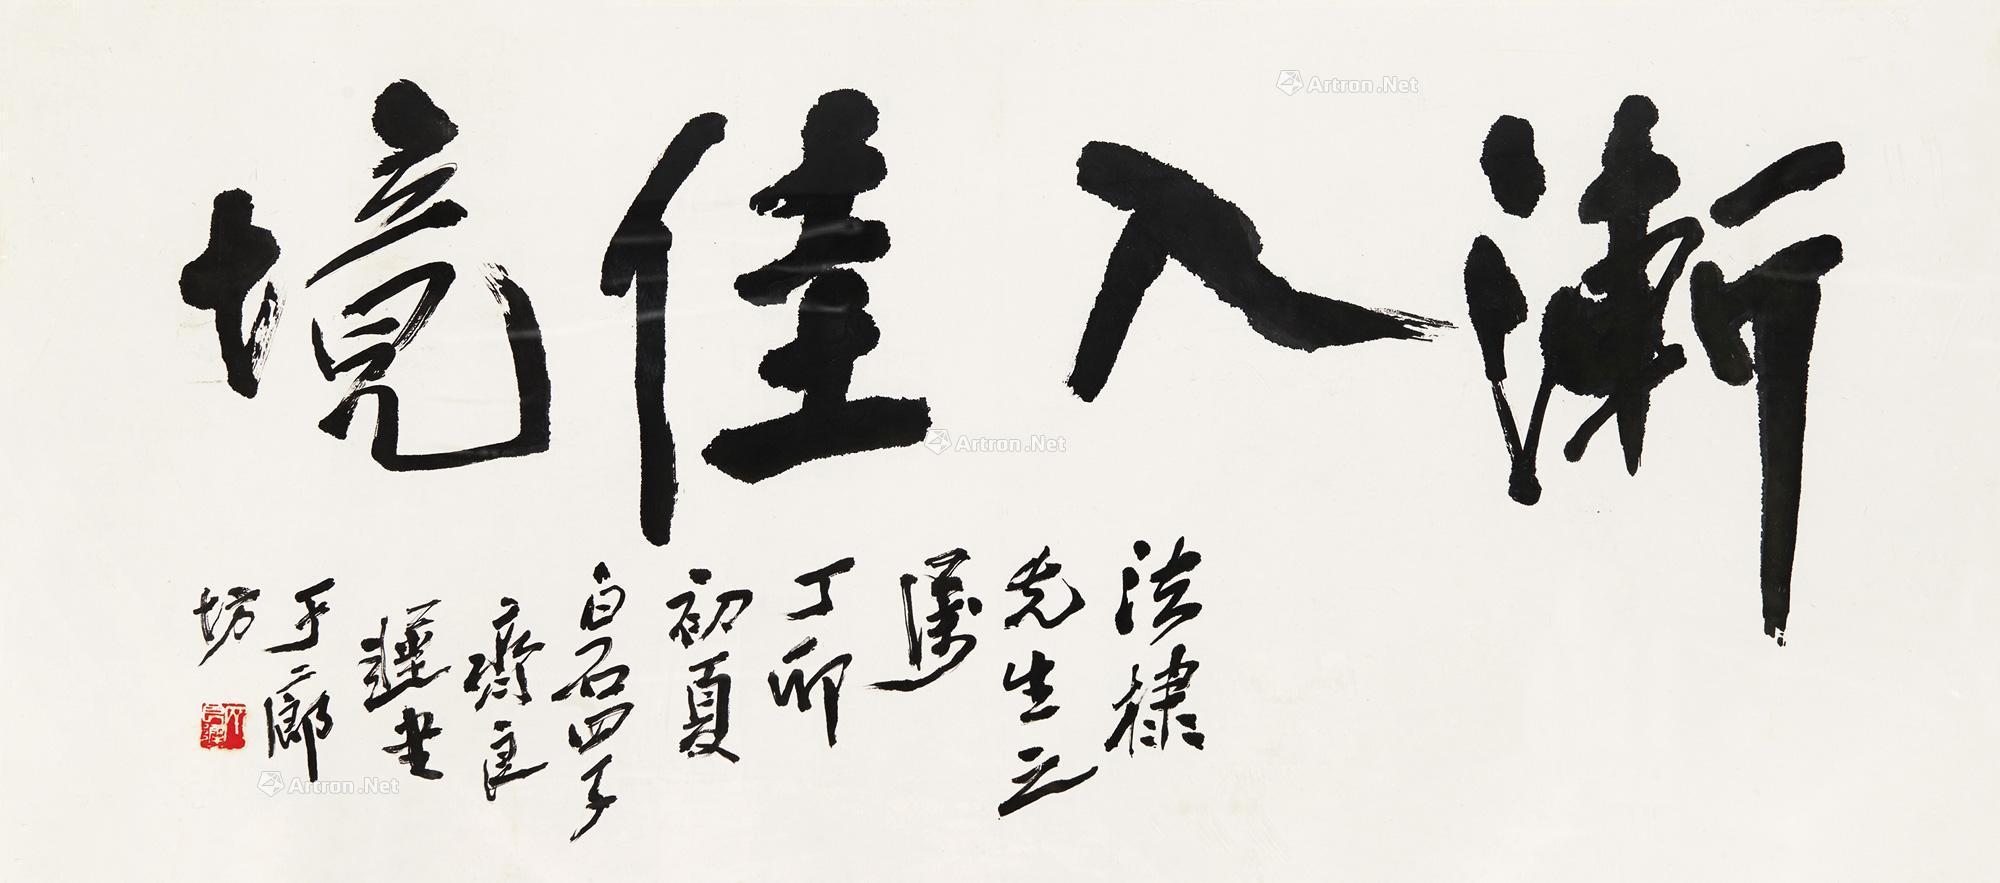 漸入佳境
法棣
先生之
属
丁卯
初夏
白石四子
齊良
遲書
于廊
坊
Artron.Net
Artron.Net
Artron.Net